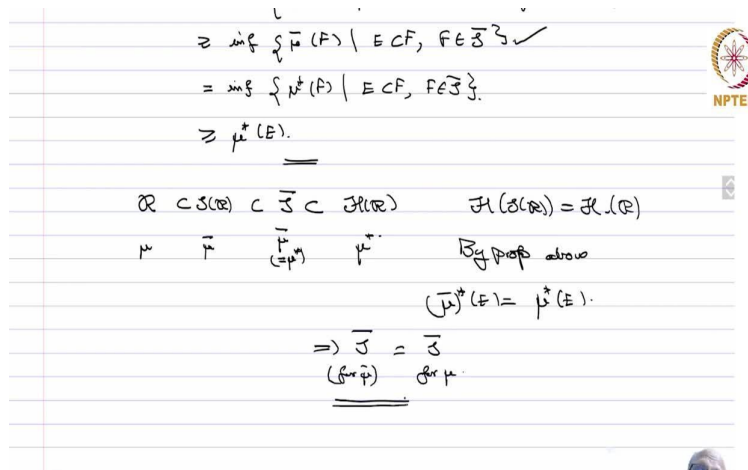 ≥ inf { μ̄ (F) | E ⊂ F, F ∈ S̄ } ✓
= inf { μ* (F) | E ⊂ F, F ∈ S̄ }.
≥ μ* (E).
NPTE
R ⊂ S(R) ⊂ S̄ ⊂ H(R) H(S(R)) = H(R)
μ μ̄ μ̄ μ*. By prop above
(=μ*)
(μ̄)* (E) = μ* (E).
⇒ S̄ = S̄
(for μ̄) for μ.